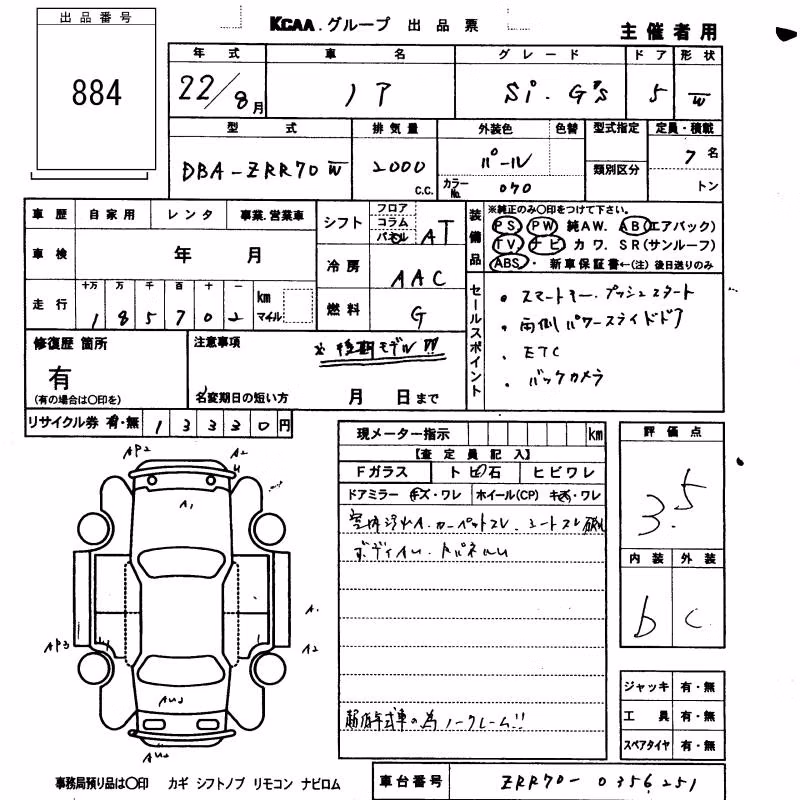 出品番号
884
KCAA.グループ 出品票
主催者用
年式 車名 グレード ドア 形状
22/8月 ノア Si.G's 5 W
型式 排気量 外装色 色替 型式指定 定員・積載
DBA-ZRR70W 2000 c.c. パール 7名
カラーNo. 070 類別区分 トン
車歴 自家用 レンタ 事業.営業車
シフト フロア コラム パネル AT
装備品
※純正のみ○印をつけて下さい。
PS PW 純AW. AB(エアバック)
TV ナビ カワ. SR(サンルーフ)
ABS・ 新車保証書←(注)後日送りのみ
車検 年 月
冷房 AAC
走行 十万 万 千 百 十 一
1 8 5 7 0 2 km マイル
燃料 G
セールスポイント
・スマートキー.プッシュスタート
・両側パワースライドドア
・ETC
・バックカメラ
修復歴 箇所
有
(有の場合は○印を)
注意事項
※後期モデル!!!
名変期日の短い方 月 日まで
リサイクル券 有・無 1 3 3 3 0 円
現メーター指示 km
【査定員記入】
Fガラス トビ石 ヒビワレ
ドアミラー キズ・ワレ ホイール(CP) キズ・ワレ
ノークレーム!!
評価点
3.5
内装 外装
b C
AP2 A2
U
A1
A.
AP3 A2
AU2
ジャッキ 有・無
工具 有・無
スペアタイヤ 有・無
事務局預り品は○印 カギ シフトノブ リモコン ナビロム
車台番号 ZRR70-0356251